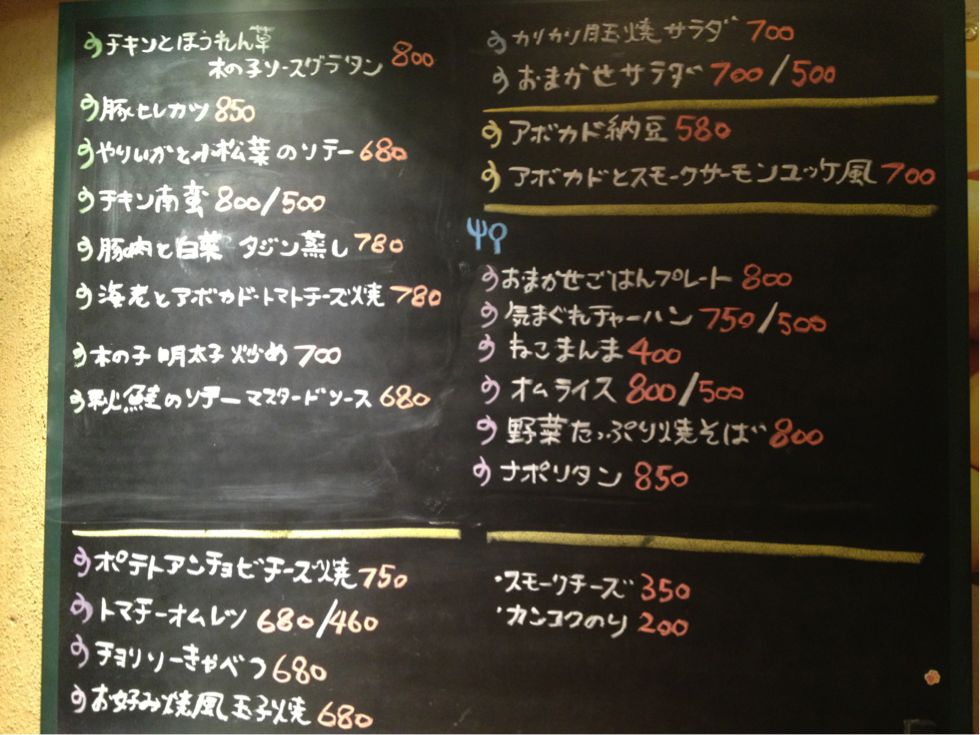 チキンとほうれん草
木の子ソースグラタン 800
豚ヒレカツ 850
やりいかと小松菜のソテー 680
チキン南蛮 800/500
豚肉と白菜 タジン蒸し 780
海老とアボカド・トマトチーズ焼 780
木の子明太子炒め 700
秋鮭のソテーマスタードソース 680
ポテトアンチョビチーズ焼 750
トマチーオムレツ 680/460
チョリソーきゃべつ 680
お好み焼風玉子焼 680
カリカリ目玉焼サラダ 700
おまかせサラダ 700/500
アボカド納豆 580
アボカドとスモークサーモンユッケ風 700
おまかせごはんプレート 800
気まぐれチャーハン 750/500
ねこまんま 400
オムライス 800/500
野菜たっぷり焼そば 800
ナポリタン 850
・スモークチーズ 350
・カンコクのり 200